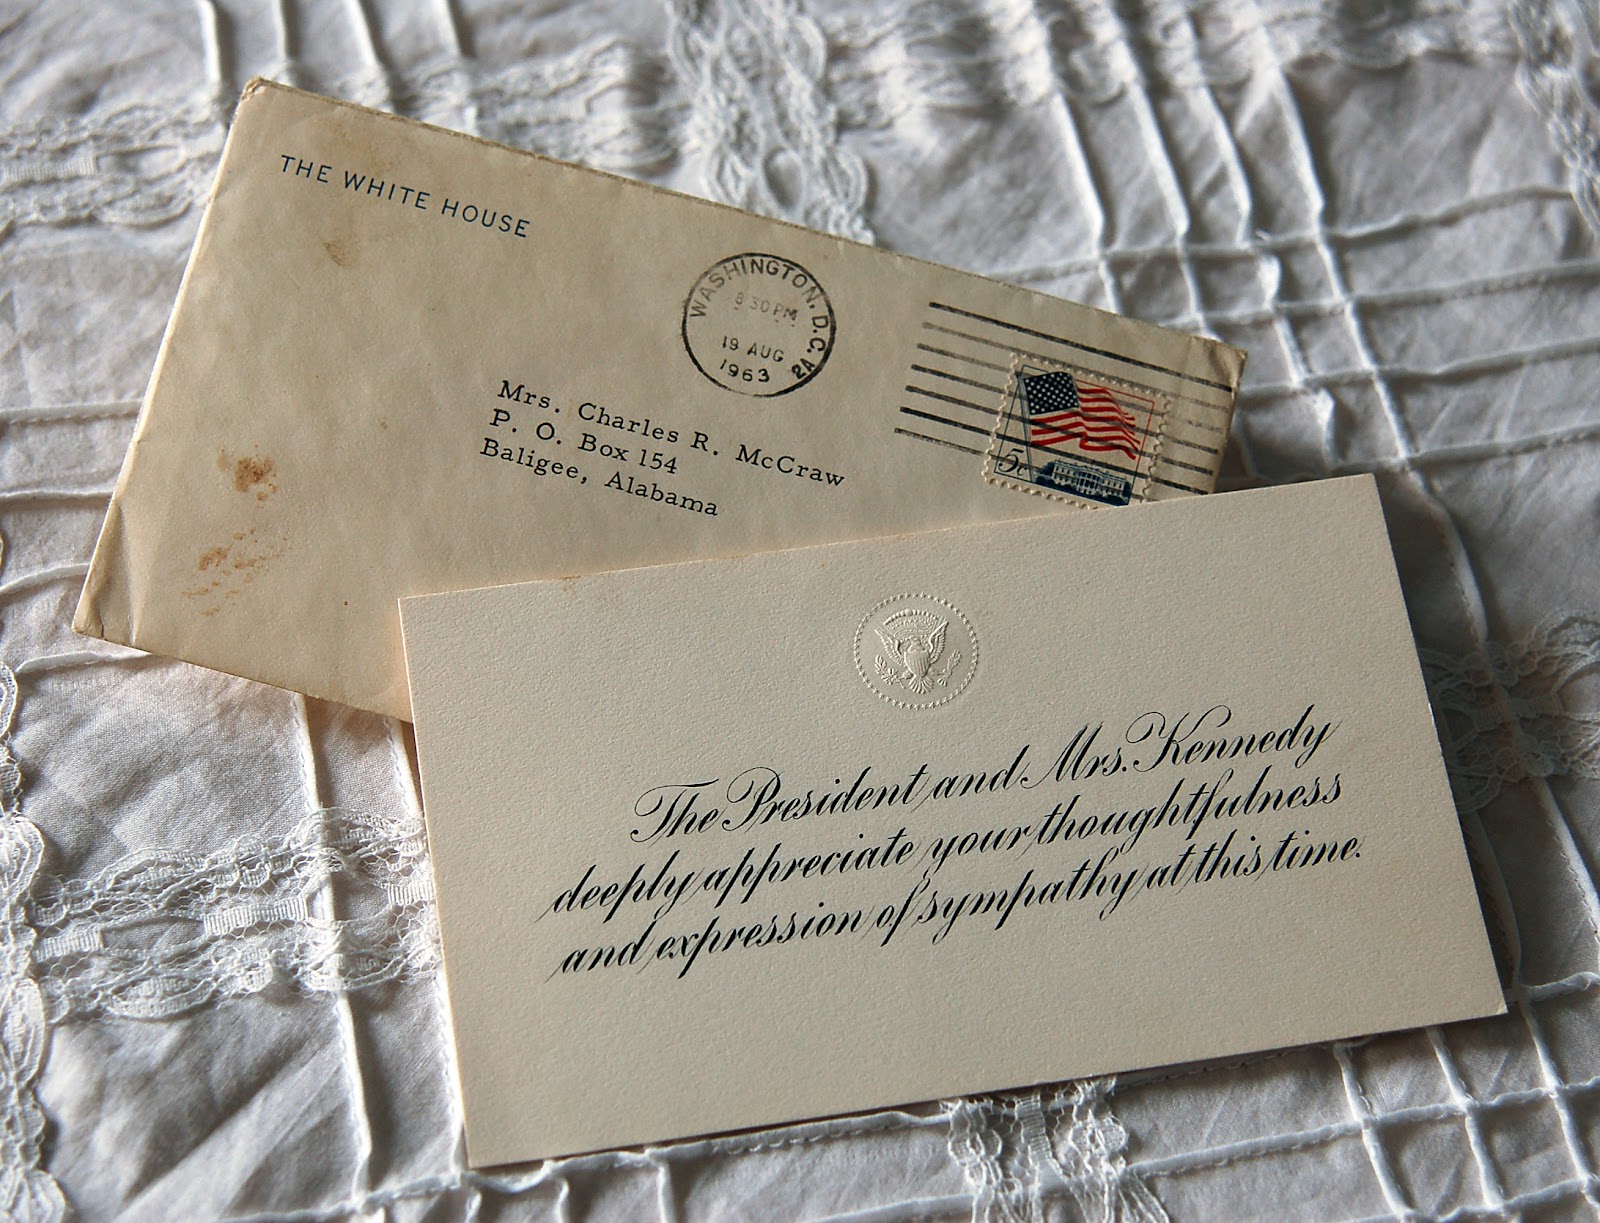 THE WHITE HOUSE
WASHINGTON, D.C.
8 30 PM
19 AUG
1963
2A
5c
Mrs. Charles R. McCraw
P. O. Box 154
Baligee, Alabama
The President and Mrs. Kennedy
deeply appreciate your thoughtfulness
and expression of sympathy at this time.